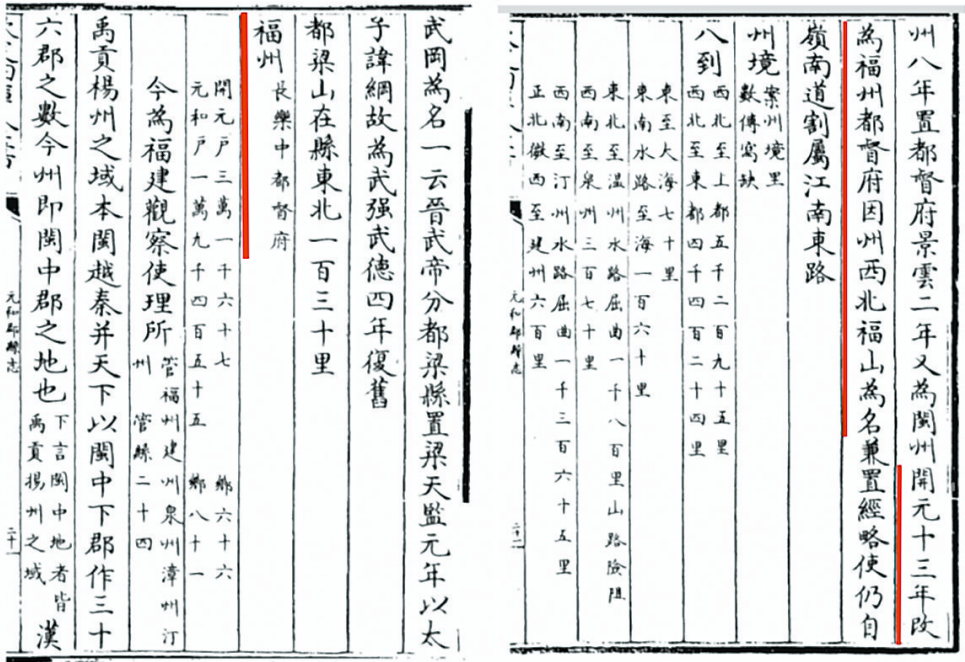 武岡為名一云晉武帝分都梁縣置梁天監元年以太
子諱綱故為武强武德四年復舊
都梁山在縣東北一百三十里
福州長樂中都督府
開元戶三萬一千六十七 鄉六十六
元和戶一萬九千四百五十五 鄉八十一
今為福建觀察使理所管福州建州泉州漳州汀
州 管縣二十四
禹貢楊州之域本閩越秦并天下以閩中下郡作三十
六郡之數今州即閩中郡之地也下言閩中地者皆
禹貢揚州之域漢
元和郡縣志
州八年置都督府景雲二年又為閩州開元十三年改
為福州都督府因州西北福山為名兼置經略使仍自
嶺南道割屬江南東路
州境案州境里
數傳寫缺
八到西北至上都五千二百九十五里
西北至東都四千四百二十四里
東至大海七十里
東南水路至海一百六十里
東北至溫州水路屈曲一千八百里山路險阻
西南至泉州三百七十里
西南至汀州水路屈曲一千三百六十五里
正北微西至建州六百里
元和郡縣志
二十二